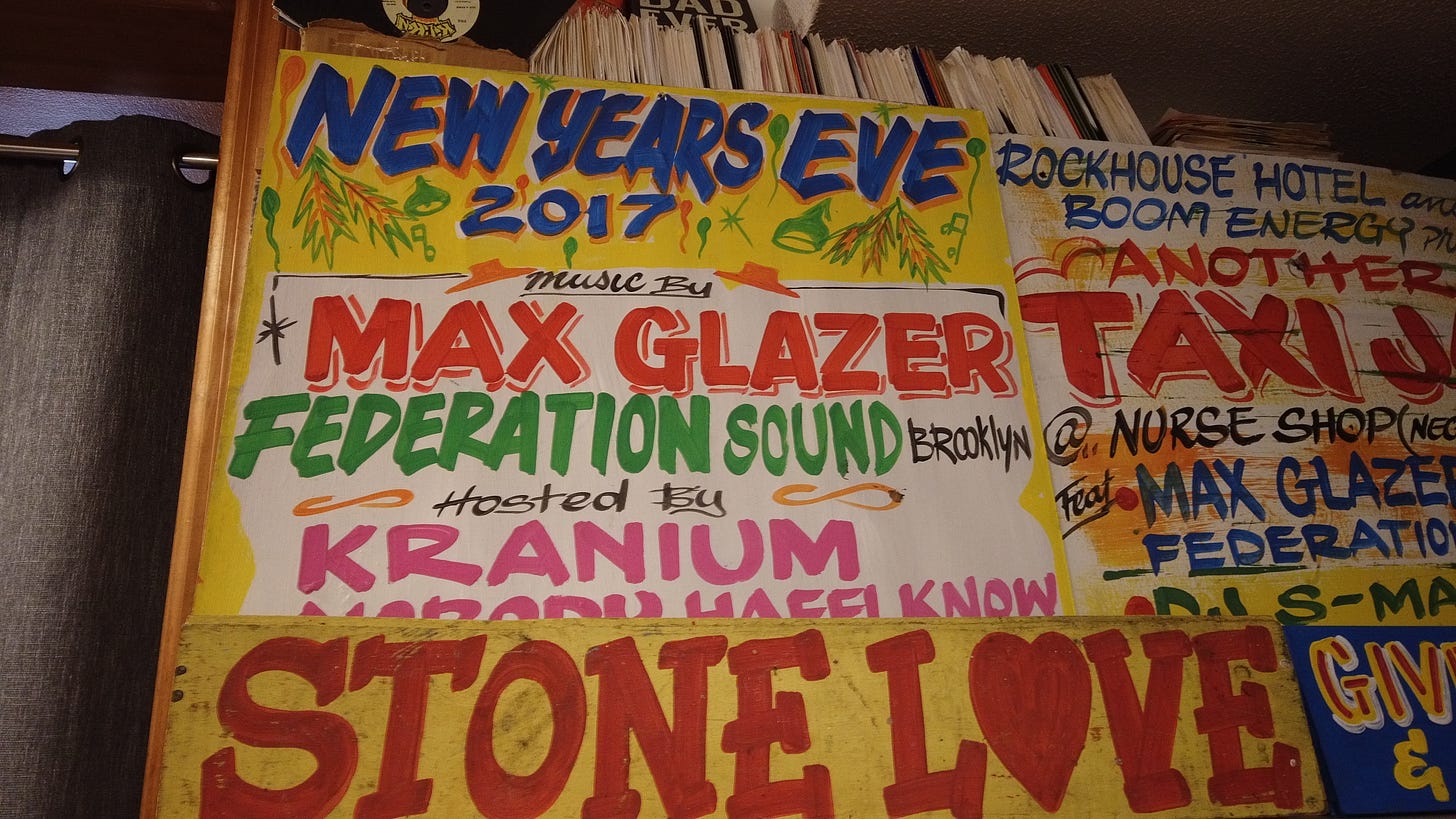 DAD
EVER
NEW YEARS EVE
2017
music By
MAX GLAZER
FEDERATION SOUND BROOKlyN
Hosted By
KRANIUM
NOBODY HAFFI KNOW
STONE LOVE
ROCKHOUSE HOTEL
BOOM ENERGY
ANOTHER
TAXI
@.. NURSE SHOP
Feat MAX GLAZER
FEDERATION
DJ S-MA
GIV
&